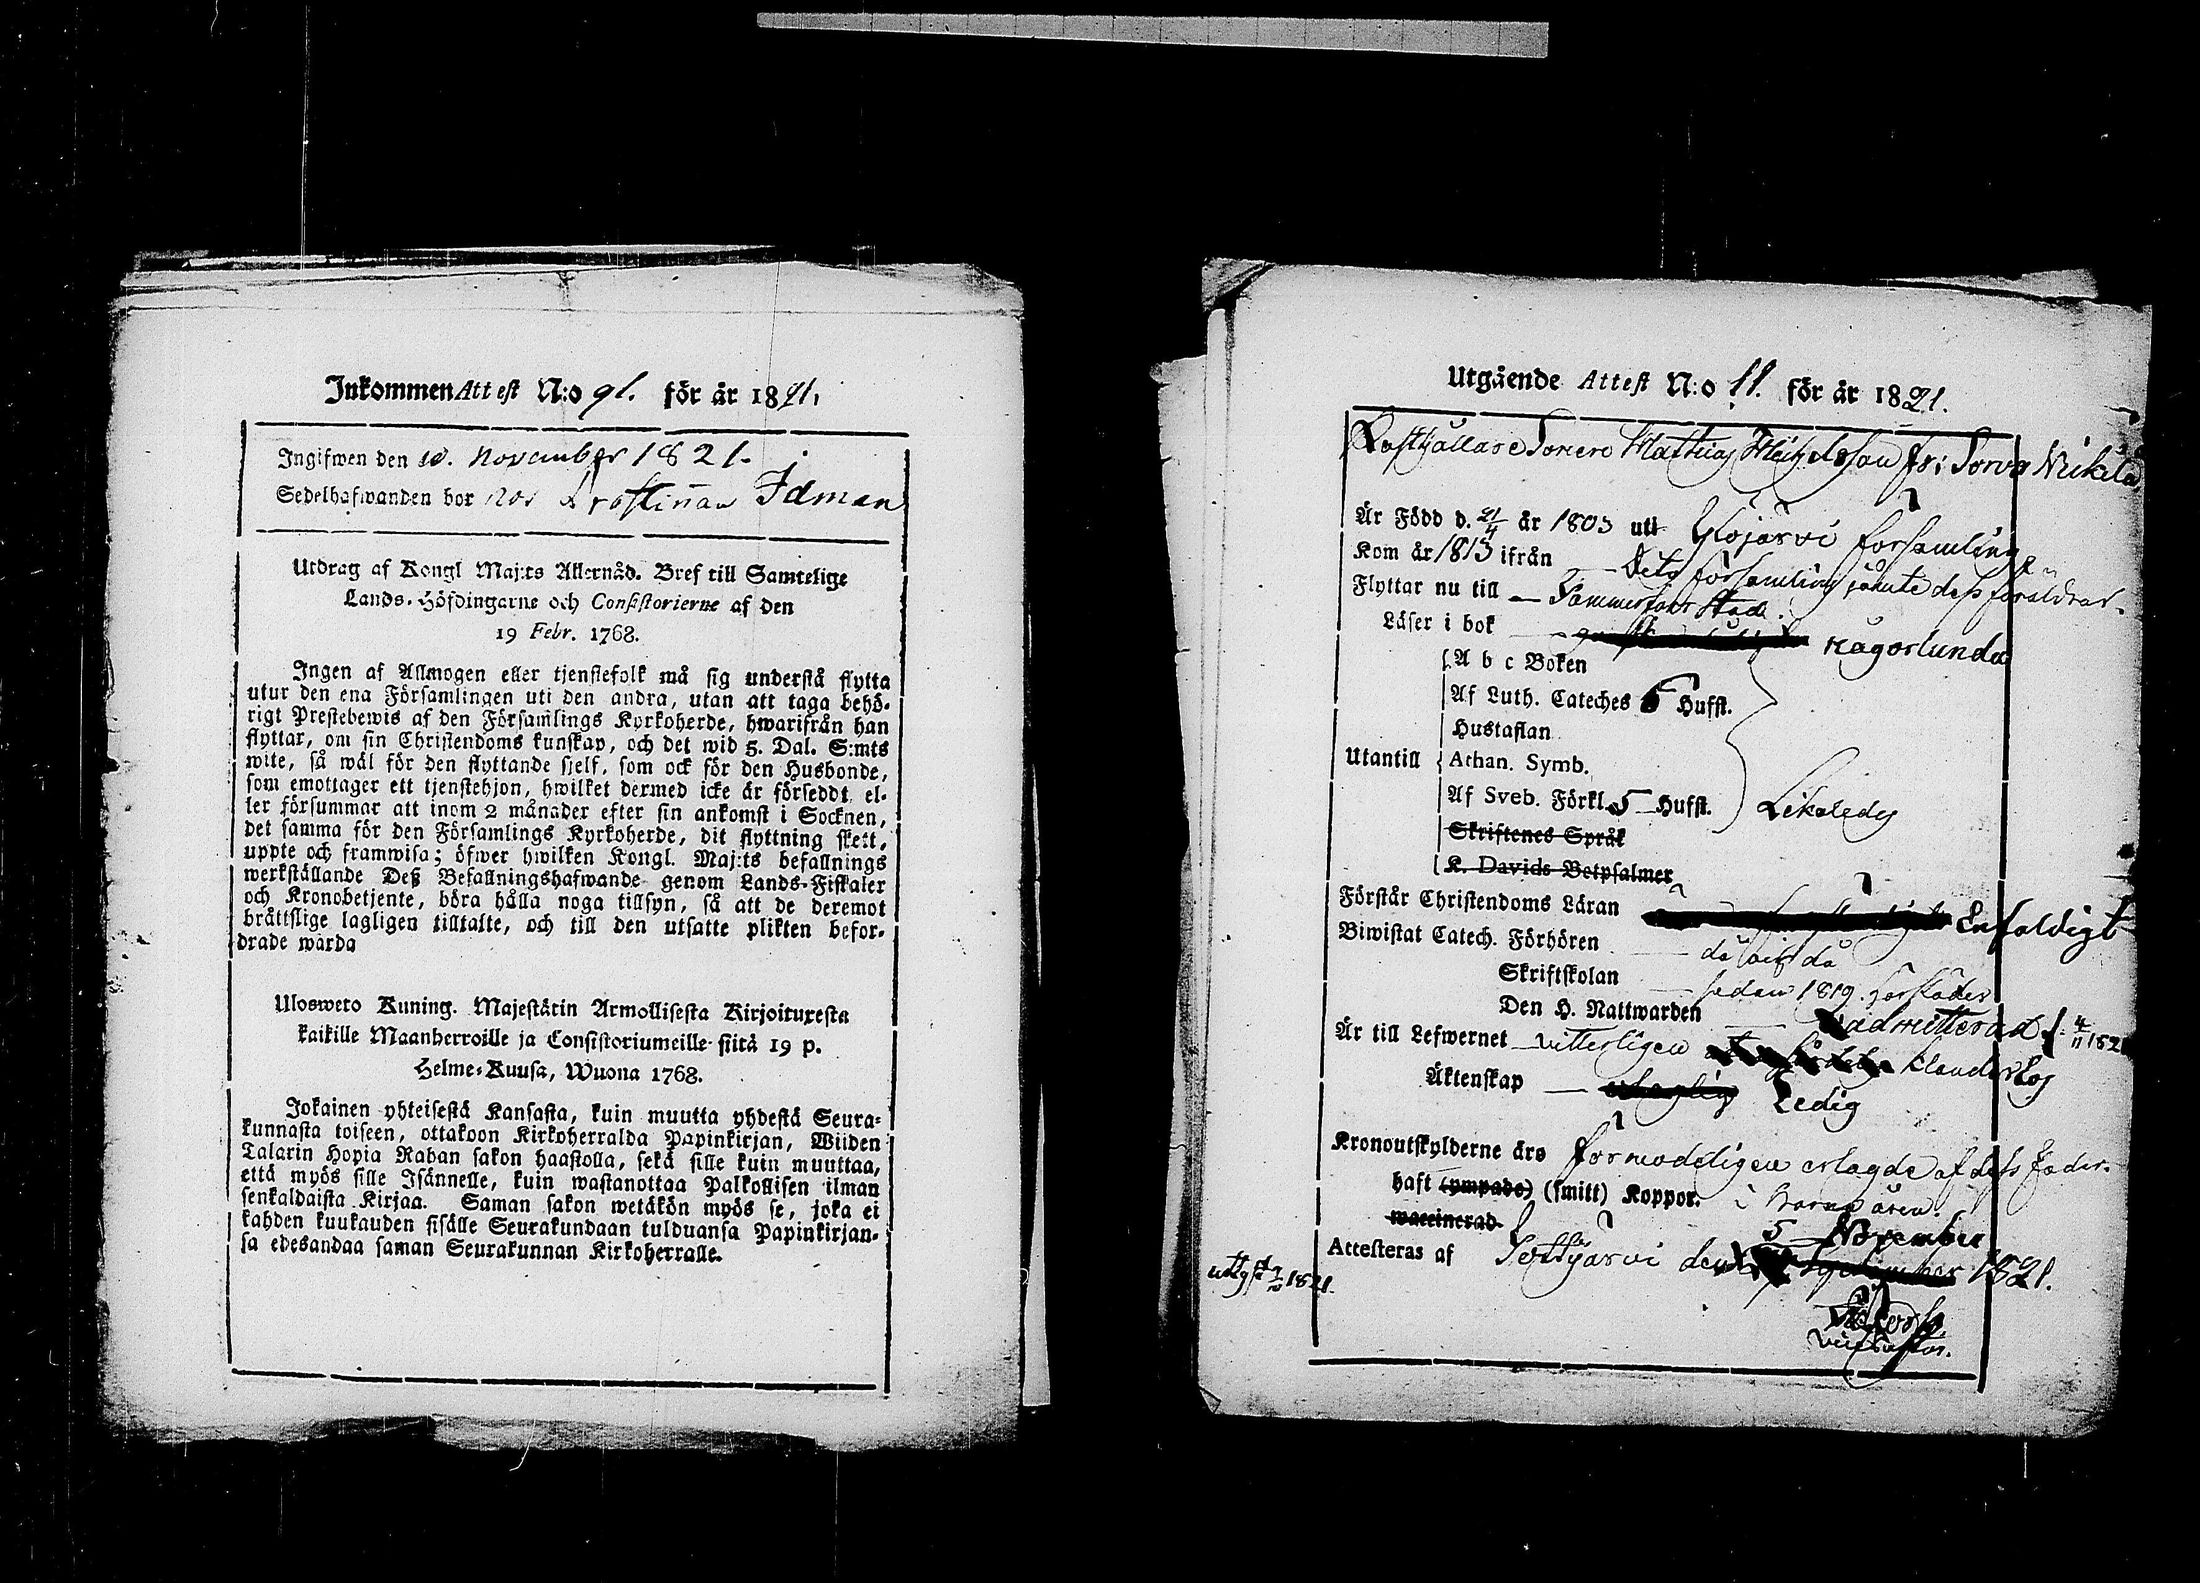 Inkommen Attest N:o 91. för år 1821.
Ingifwen den 10. November 1821.
Sedelhafwanden bor hos Prostinnan Idman
Utdrag af Kongl Maj:ts Allernåd. Bref till Samtelige
Lands-Höfdingarne och Consistorierne af den
19 Febr. 1768.
Ingen af Allmogen eller tjenstefolk må sig understå flytta
utur den ena Församlingen uti den andra, utan att taga behö-
rigt Prestebewis af den Församlings Kyrkoherde, hwarifrån han
flyttar, om sin Christendoms kunskap, och det wid 5. Dal. S:mts
wite, så wäl för den flyttande sjelf, som ock för den Husbonde,
som emottager ett tjenstehjon, hwilket dermed icke är försedt, el-
ler försummar att inom 2 månader efter sin ankomst i Socknen,
det samma för den Församlings Kyrkoherde, dit flyttning skett,
uppte och framwisa; öfwer hwilken Kongl. Maj:ts befallnings
werkställande Deß Befallningshafwande genom Lands-Fiskaler
och Kronobetjente, böra hålla noga tillsyn, så att de deremot
bråttslige lagligen tilltalte, och till den utsatte plikten befor-
drade warda
Ulosweto Kuning. Majestätin Armollisesta Kirjoituxesta
kaikille Maanherroille ja Consistoriumeille siitä 19 p.
Helme-Kuusa, Wuona 1768.
Jokainen yhteisestä Kansasta, kuin muutta yhdestä Seura-
kunnasta toiseen, ottakoon Kirkoherralda Papinkirjan, Wiiden
Talarin Hopia Rahan sakon haastolla, sekä sille kuin muuttaa,
että myös sille Isännelle, kuin wastanottaa Palkollisen ilman
senkaldaista Kirjaa. Saman sakon wetäkön myös se, joka ei
kahden kuukauden sisälle Seurakundaan tulduansa Papinkirjan-
sa edesandaa saman Seurakunnan Kirkoherralle.
Utgående Attest N:o 11. för år 1821.
Rusthållare Sonen Mattias Michelsson fr: Sorva Mikkila
Är Född d. 21/4 år 1803 uti Ylöjärvi församling
Kom år 1813 ifrån — församling jämte dess föräldrar.
Flyttar nu till — Tammerfors Stad.
Läser i bok — någorlunda
A b c Boken
Af Luth. Cateches 5 Hufst.
Hustaflan
Utantill Athan. Symb.
Af Sveb. Förkl. 5 Hufst. Likaledes
Skriftenes Språk
K. Davids Botpsalmer
Förstår Christendoms Läran Enfaldigt
Biwistat Catech. Förhören — då och då
Skriftskolan — sedan 1819.
Den H. Nattwarden — admitterad d. 4/11 1821
Är till Lefwernet — vitterligen klanderlös
Äktenskap — Ledig
Kronoutskylderne äro förmodeligen erlagde af dess Fader.
haft (ympade) (smitt) Koppor. i barnaåren.
waccinerad
5 November
Attesteras af Sottjärvi den 1821.